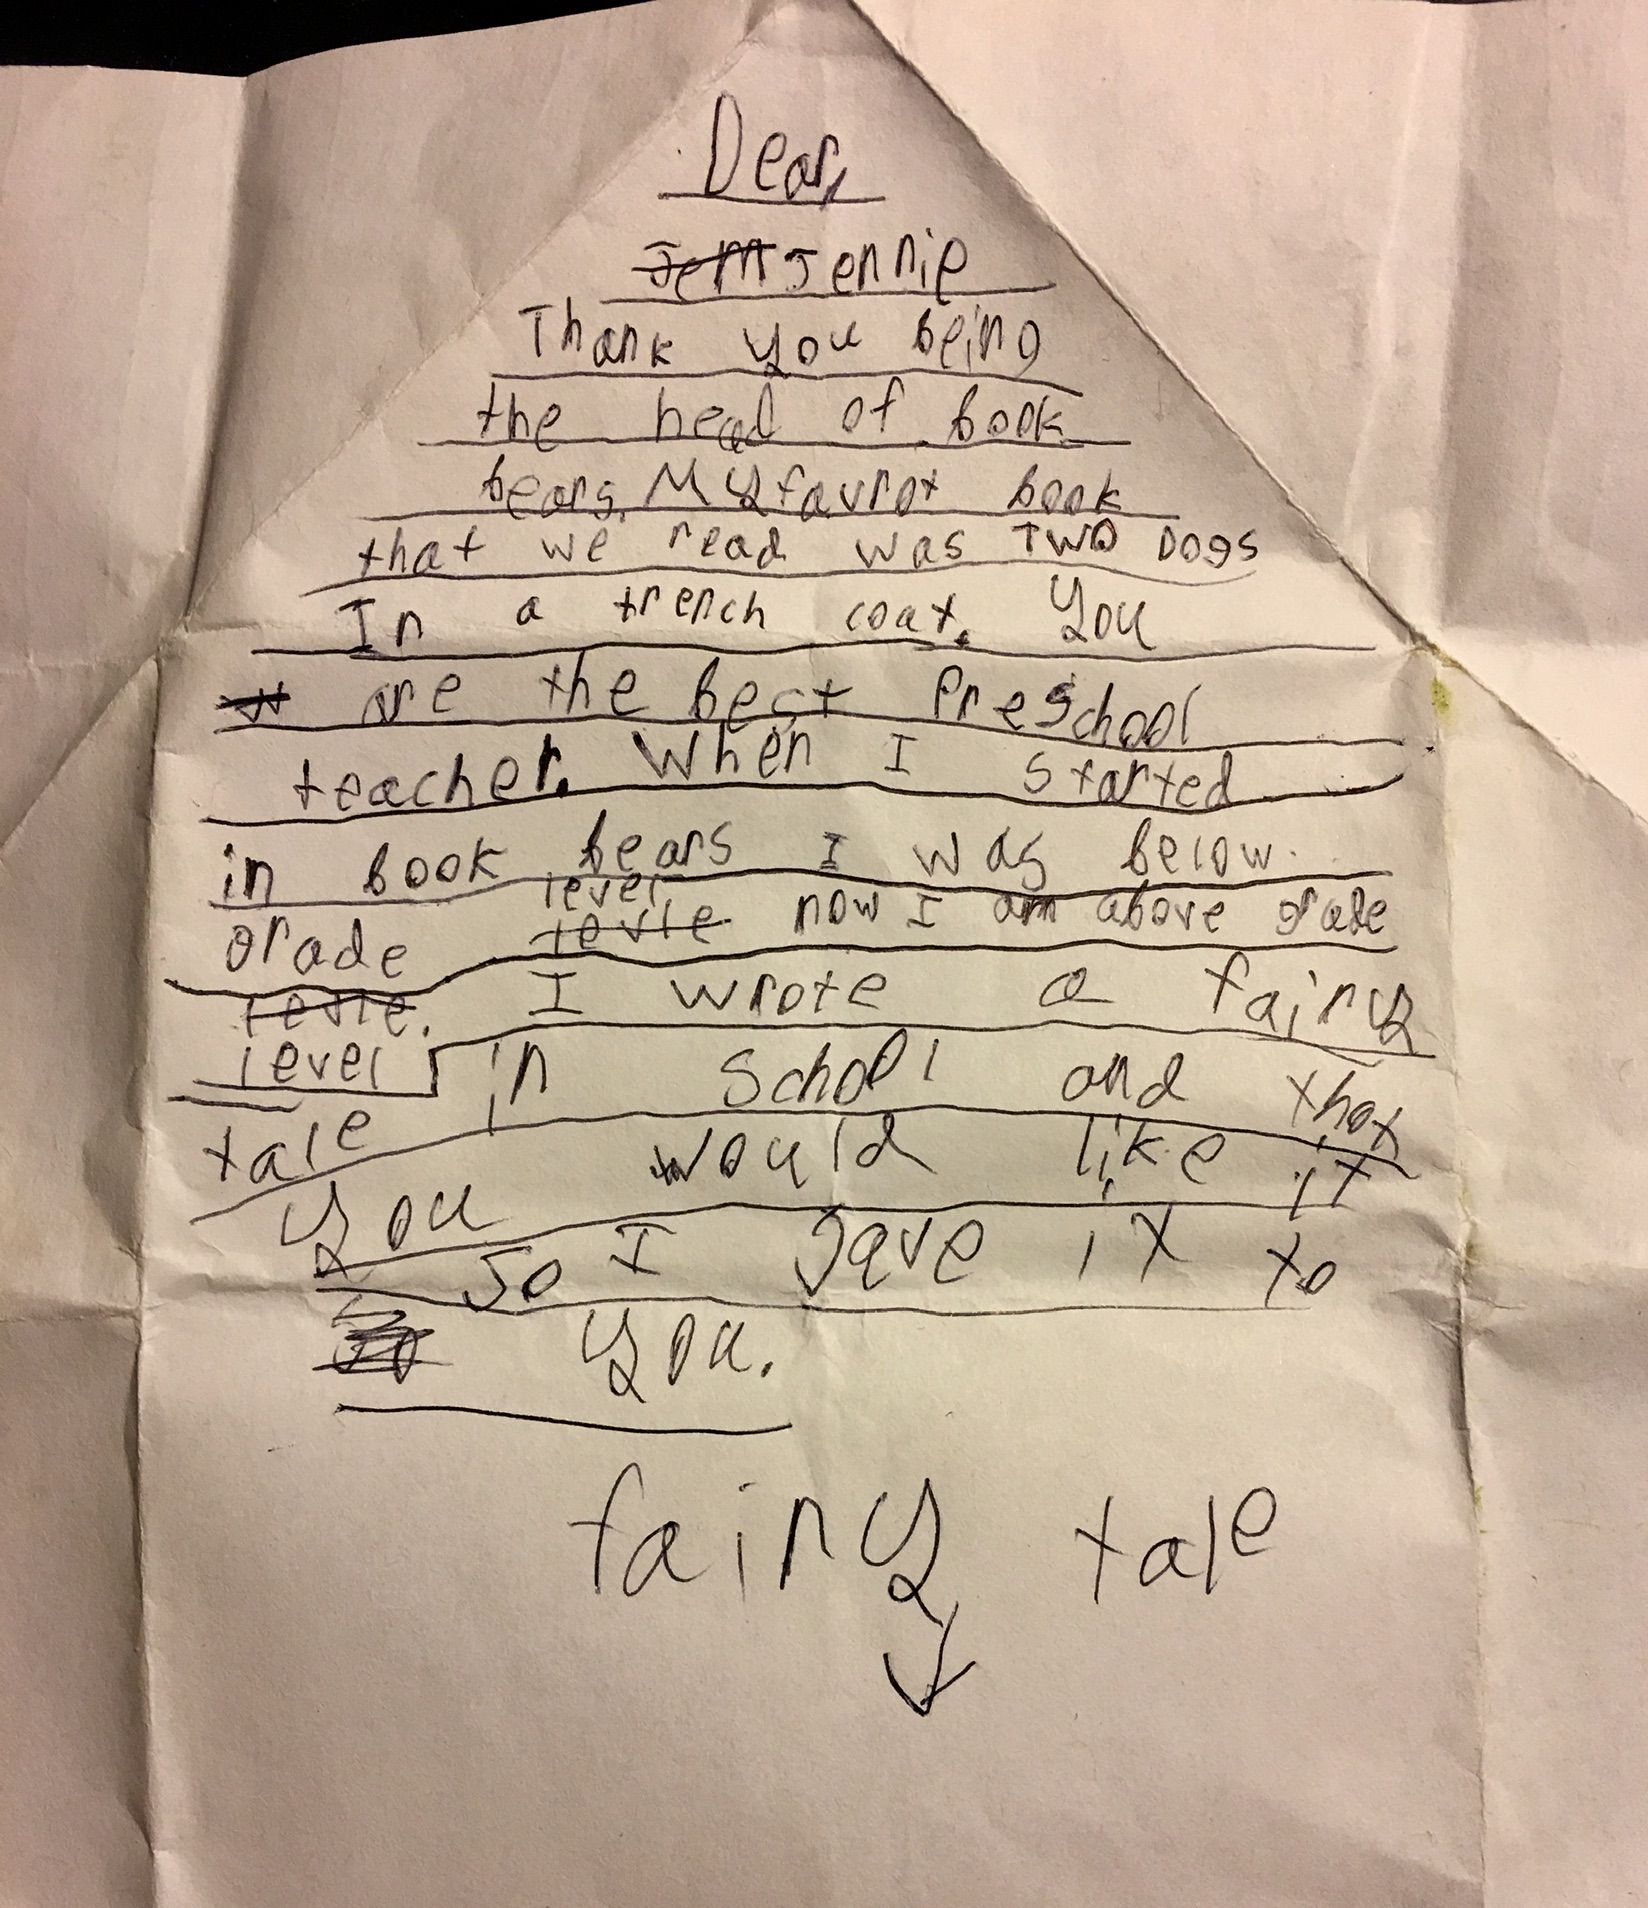 Dear,
Jem Jennie
Thank you being
the head of book
bears. My favrot book
that we read was TWO DOGS
In a trench coat. You
are the best Preschool
teacher. When I started
in book bears I was below
grade level levle now I am above grade
levle. I wrote a fairy
level in school and that
tale
you would like it
so I gave it to
so you.
fairy tale